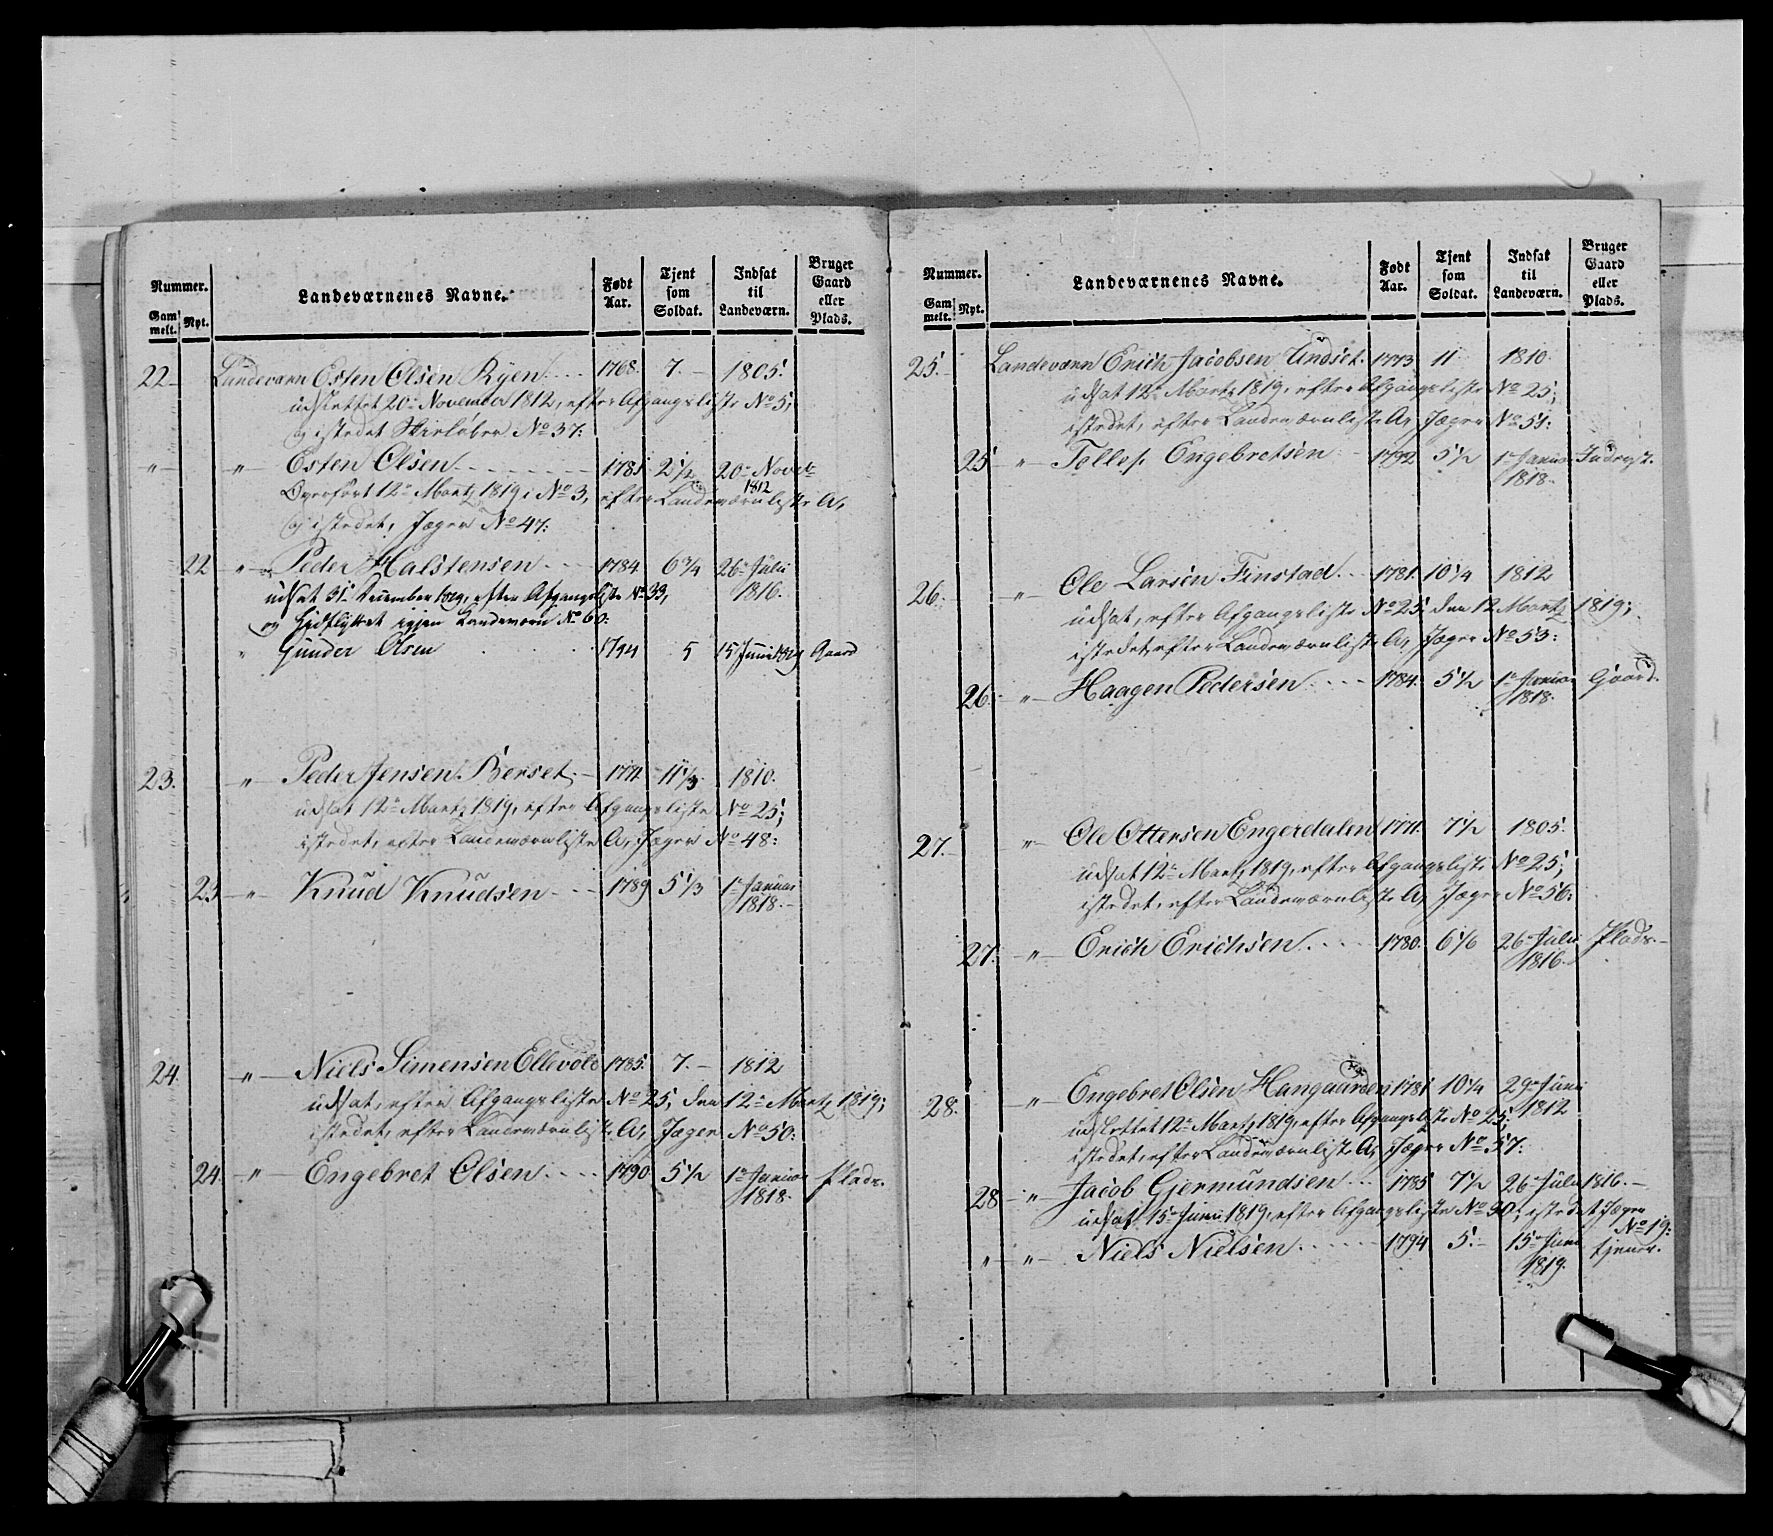 Nummer.
Gammelt.
Nyt.
Landeværnenes Navne.
Født Aar.
Tjent som Soldat.
Indsat til Landeværn.
Bruger Gaard eller Plads.
22 – Landeværn Esten Olsen Ryen 1768. 7. – 1805.
udslettet 20de November 1812, efter Afgangsliste No 5,
og istedet Skieløber No 37:
" – " Esten Olsen 1781 2 1/2 20de Novbr 1812
Overført 12te Martz 1819 i No 3, efter Landeværnliste A,
og istedet, Jæger No 47:
22 " – Peder Halstensen 1784 6 3/4 26de Julii 1816.
udsat 31te December 1819, efter Afgangsliste No 33,
og hidflyttet igjen Landeværn No 60:
" Gunder Olsen 1794 5 15 Junii 1819 Gaard
23. " – Peder Jensen Berset 1771 11 1/3. 1810.
udsat 12te Martz 1819, efter Afgangsliste No 25;
istedet, efter Landeværnliste A, Jæger No 48:
23 – " – Knud Knudsen 1789 5 1/3 1te Januar 1818. –
24. – " – Niels Simensen Ellevold 1785. 7. – 1812
udsat, efter Afgangsliste No 25, den 12te Martz 1819;
istedet, efter Landeværnliste A, Jæger No 50:
24. – " – Engebret Olsen 1790 5 1/2 1te Januar 1818. Plads.
Nummer.
Gammelt.
Nyt.
Landeværnenes Navne.
Født Aar.
Tjent som Soldat.
Indsat til Landeværn.
Bruger Gaard eller Plads.
25. – Landeværn Erich Jacobsen Undset 1773 11 1810.
udsat 12te Martz 1819, efter Afgangsliste No 25;
istedet, efter Landeværnliste A, Jæger No 51:
25 – " – Tollef Engebretsen 1792 5 1/2 1te Januar 1818. Inderst.
26. " – Ole Larsen Finstad 1781. 10 1/4 1812
udsat, efter Afgangsliste No 25. den 12 Martz 1819;
istedet, efter Landeværnliste A, Jæger No 53:
26. – " – Haagen Pedersen 1784. 5 1/2 1te Januar 1818. Gaard.
27. " – Ole Ottersen Engerdalen 1771. 7 1/2 1805.
udsat 12te Martz 1819, efter Afgangsliste No 25;
istedet, efter Landeværnliste A, Jæger No 56:
27. – " – Erich Erichsen 1780. 6 1/6 26de Julii 1816. Plads. –
28. " – Engebret Olsen Hangaarden 1781 10 1/4 29de Junii 1812
udslettet 12te Martz 1819, efter Afgangsliste No 25,
istedet, efter Landeværnliste A, Jæger No 57:
28 – " – Jacob Gjermundsen 1785 7 1/2 26de Julii 1816. –
udsat 15de Junii 1819, efter Afgangsliste No 30; istedet Jæger No 19:
" – " – Niels Nielsen 1794 5. – 15de Junii 1819. tjener.